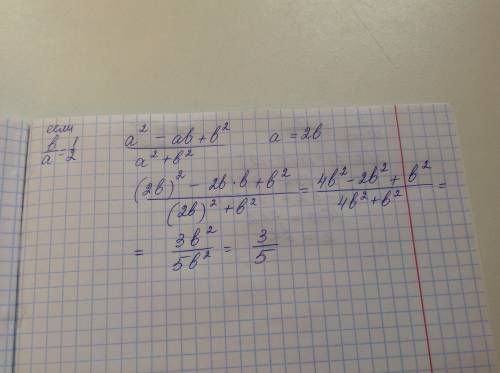 если
b/a = 1/2
(a² - ab + b²)/(a² + b²)   a = 2b
((2b)² - 2b·b + b²)/((2b)² + b²) = (4b² - 2b² + b²)/(4b² + b²) =
= 3b²/5b² = 3/5